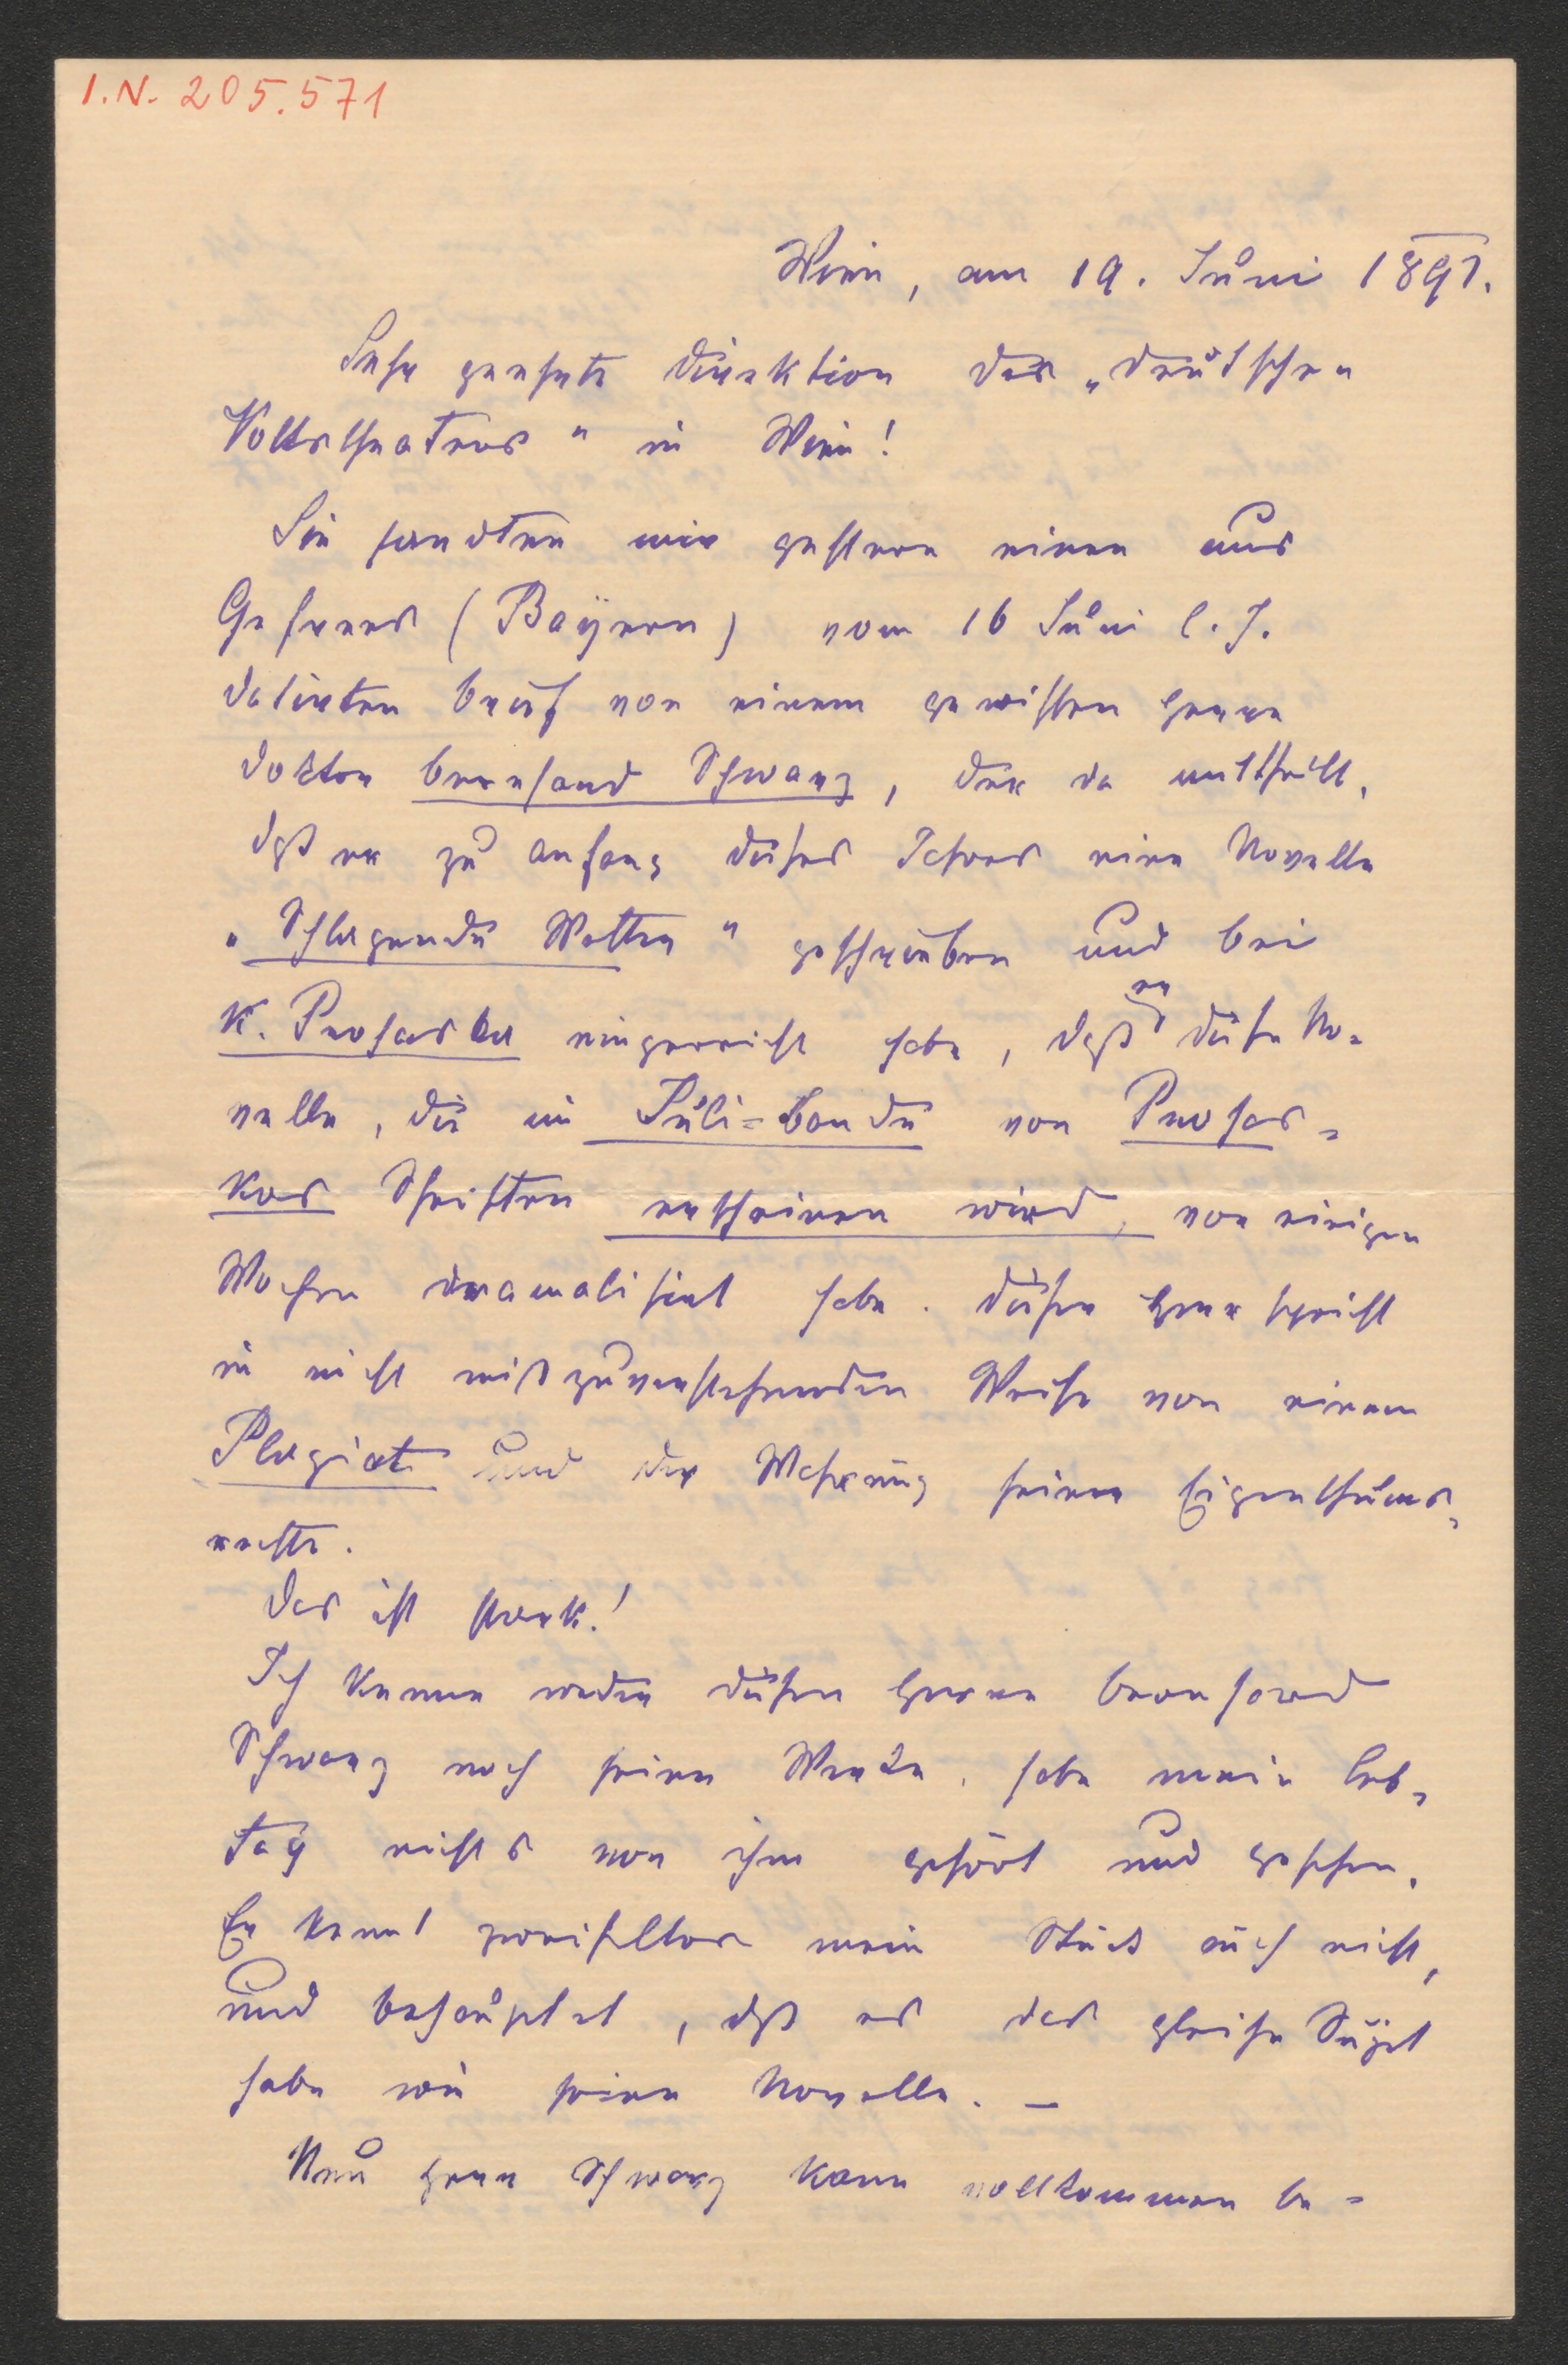 I.N. 205.571
Wien, am 19. Juni 1897.
Sehr geehrte Direktion des „Deutschen
Volkstheaters" in Wien!
Sie sandten mir gestern einen aus
Gefrees (Bayern) vom 16 Juni l. J.
datirten Brief von einem gewissen Herrn
Doktor Bernhard Schwarz, der da mittheilt,
daß er zu Anfang dieses Jahres eine Novelle
„Schlagende Wetter" geschrieben und bei
K. Prohaska eingereicht habe, daß er diese No=
velle, die im Juli=Bande von Prohas=
kas Schriften erscheinen wird, vor einigen
Wochen dramatisirt habe. Dieser Herr spricht
in nicht mißzuverstehender Weise von einem
Plagiat und der Wahrung seiner Eigenthums=
rechte.
Das ist stark!
Ich kenne weder diesen Herrn Bernhard
Schwarz noch seine Werke, habe mein Leb=
tag nichts von ihm gehört und gesehen.
Er kennt zweifellos mein Stück auch nicht,
und behauptet, daß es das gleiche Süjet
habe wie seine Novelle. –
Nun Herr Schwarz kann vollkommen be=